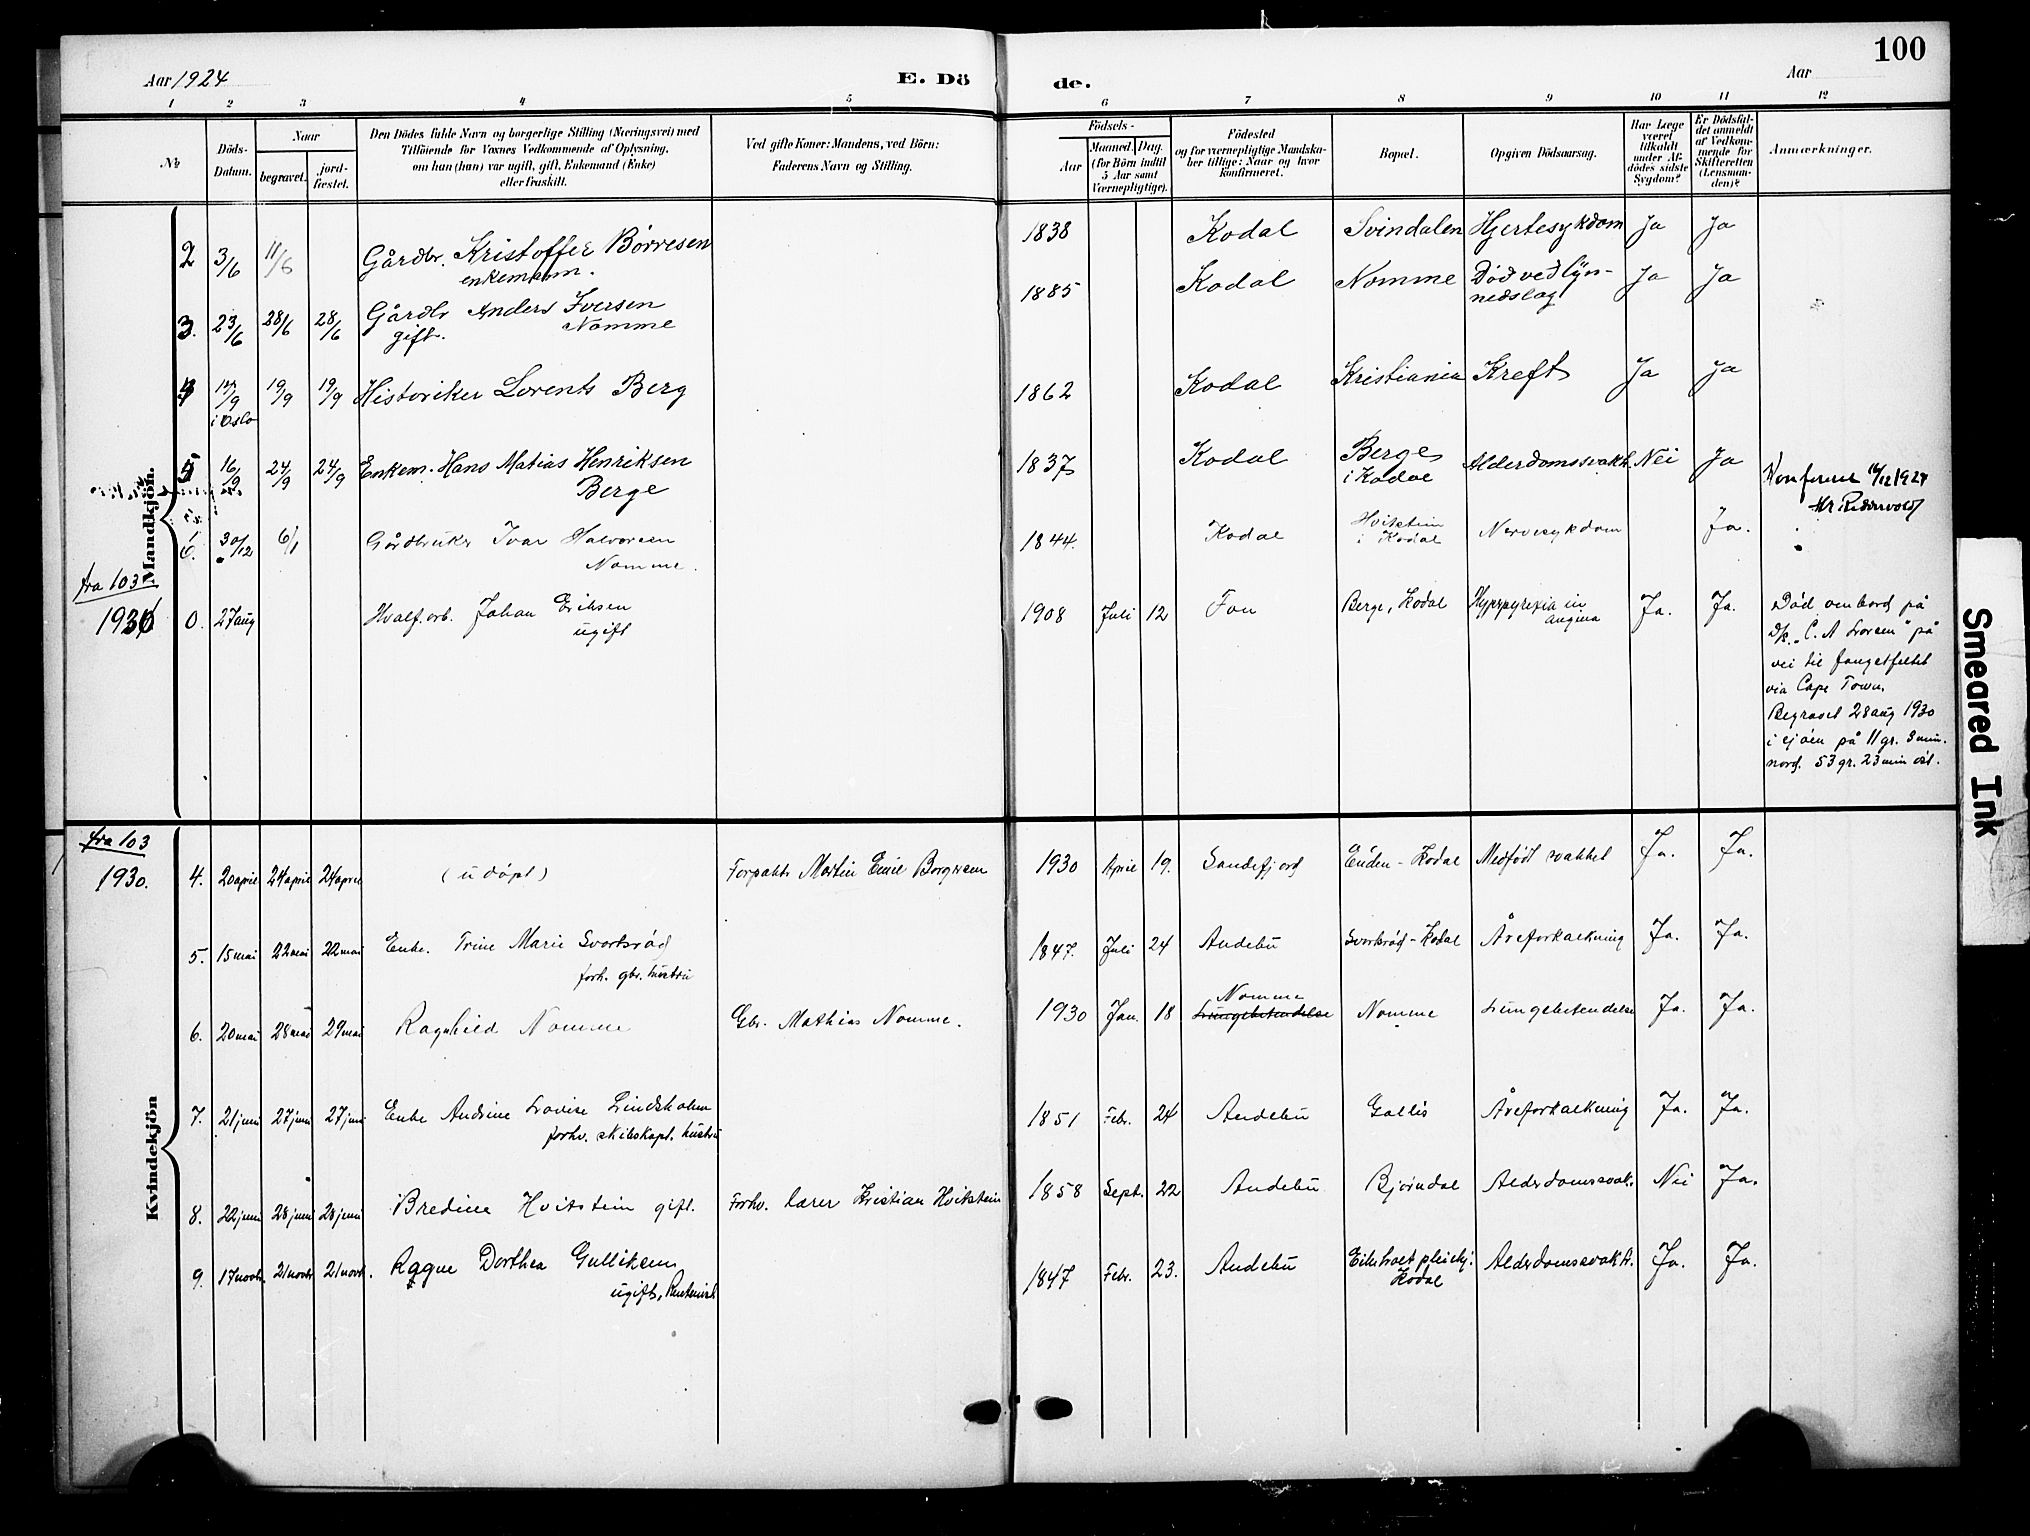 100
Aar 1924
E. Dö
de.
Aar
1 2 3 4 5 6 7 8 9 10 11 12
No
Döds-
Datum.
Naar
begravet.
jord-
fæstet.
Den Dödes fulde Navn og borgerlige Stilling (Næringsvei) med
Tilföiende for Voxnes Vedkommende af Oplysning,
om han (hun) var ugift, gift, Enkemand (Enke)
eller fraskilt.
Ved gifte Koner: Mandens, ved Börn:
Faderens Navn og Stilling.
Födsels-
Aar
Maaned. Dag.
(for Börn indtil
5 Aar samt
Værnepligtige).
Födested
og for værnepligtige Mandska-
ber tillige: Naar og hvor
konfirmeret.
Bopæl.
Opgiven Dödsaarsag.
Har Læge
været
tilkaldt
under Af-
dödes sidste
Sygdom?
Er Dödsfal-
det anmeldt
af Vedkom-
mende for
Skifteretten
(Lensman-
den)?
Anmærkninger.
Mandkjön.
2 3/6 11/6 Gårdbr. Kristoffer Børresen 1838 Kodal Svindalen Hjertesykdom Ja Ja
enkemann.
3. 23/6 28/6 28/6 Gårdbr Anders Iversen 1885 Kodal Nomme Død ved lyn- Ja Ja
gift. Nomme nedslag
4 17/9 19/9 19/9 Historiker Lorents Berg 1862 Kodal Kristiania Kreft Ja Ja
i Oslo
5 16/9 24/9 24/9 Enkem. Hans Matias Henriksen 1837 Kodal Berge Alderdomssvakh. Nei Ja
Berge i Kodal
Konfereret 1927
6. 30/12 6/1 Gårdbruker Ivar Halvorsen 1844. Kodal Hvitstein Nervesykdom Ja.
Nomme. i Kodal
fra 103
1930 0. 27 aug Hvalf.arb. Johan Eriksen 1908 Juli 12 Fon Berge, Kodal Hyperpyrexia in Ja. Ja.
ugift angina
Død ombord på
D/k. "C. A Larsen" på
vei til fangstfeltet
via Cape Town.
Begravet 28 aug 1930
i sjøen på 11 gr. 3 min.
nord. 53 gr. 23 min øst.
Kvindekjön
fra 103
1930. 4. 20 april 24 april 24 april (udøpt) Forpakter Martin Emil Borgersen 1930 April 19. Sandefjord Enden - Kodal Medfødt svakhet Ja. Ja.
5. 15 mai 22 mai 22 mai Enke. Trine Marie Svartsrød 1847. Juli 24 Andebu Svartsrød - Kodal Åreforkalkning Ja. Ja.
forh. gbr. hustru
6. 20 mai 28 mai 29 mai Ragnhild Nomme Gbr. Mathias Nomme. 1930 Jan. 18 Nomme Lungebetendelse Nomme Lungebetendelse Ja. Ja.
7. 21 juni 27 juni 27 juni Enke Andrine Lovise Lindsholm 1851 Febr. 24 Andebu Gallis Åreforkalkning Ja. Ja.
forhv. skibskapt. hustru
8. 22 juni 28 juni 28 juni Bredine Hvitstein gift. Forhv. lærer Kristian Hvitstein 1858 Sept. 22 Andebu Bjørndal Alderdomssvak. Nei Ja.
9. 17 novbr 21 novbr 21 novb. Ragne Dorthea Gulliksen 1847 Febr. 23. Andebu Alderdomssvakh. Ja. Ja.
ugift, Kodal
Smeared Ink